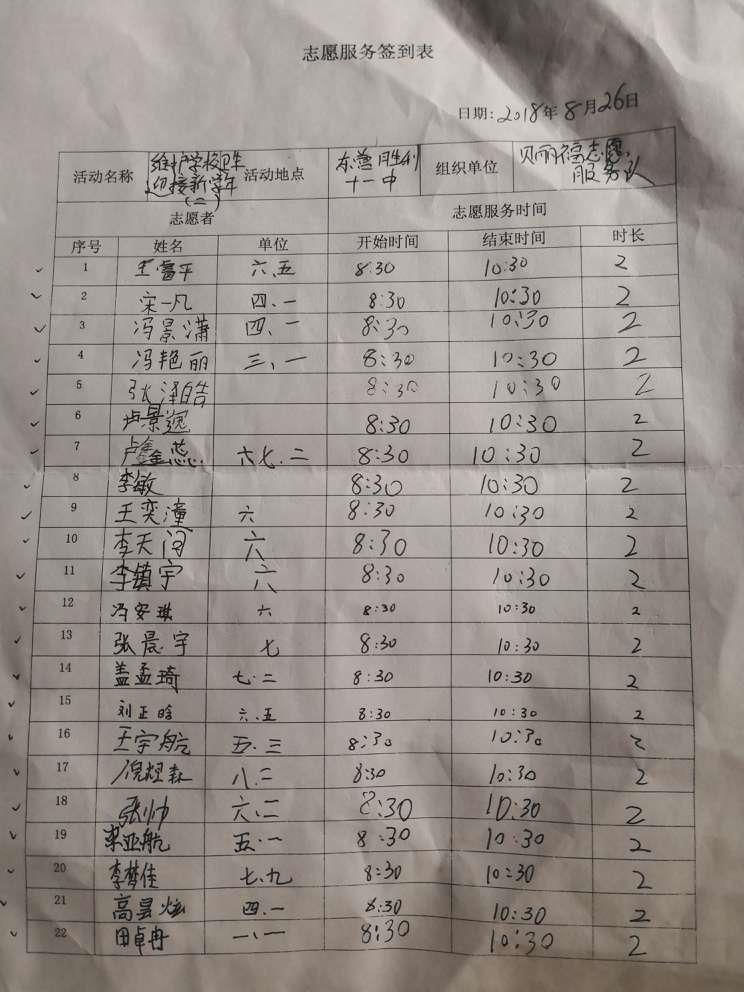 志愿服务签到表
日期：2018年8月26日
活动名称 维护学校卫生迎接新学年(二) 活动地点 东营胜利十一中 组织单位 贝丽福志愿服务队
志愿者 志愿服务时间
序号 姓名 单位 开始时间 结束时间 时长
1 王富平 六.五 8:30 10:30 2
2 宋一凡 四.一 8:30 10:30 2
3 冯景潇 四.一 8:30 10:30 2
4 冯艳丽 三、一 8:30 10:30 2
5 张泽皓 8:30 10:30 2
6 卢景逸 8:30 10:30 2
7 卢鑫蕊 六七.二 8:30 10:30 2
8 李敏 8:30 10:30 2
9 王奕潼 六 8:30 10:30 2
10 李天 六 8:30 10:30 2
11 李镇宇 六 8:30 10:30 2
12 冯安琪 六 8:30 10:30 2
13 张晨宇 七 8:30 10:30 2
14 盖孟琦 七.二 8:30 10:30 2
15 刘正晗 六.五 8:30 10:30 2
16 王宇航 五.三 8:30 10:30 2
17 倪煜森 八.二 8:30 10:30 2
18 张帅 六.二 8:30 10:30 2
19 亚航 五.一 8:30 10:30 2
20 李梦佳 七.九 8:30 10:30 2
21 高昙炫 四.一 8:30 10:30 2
22 田卓冉 一、一 8:30 10:30 2